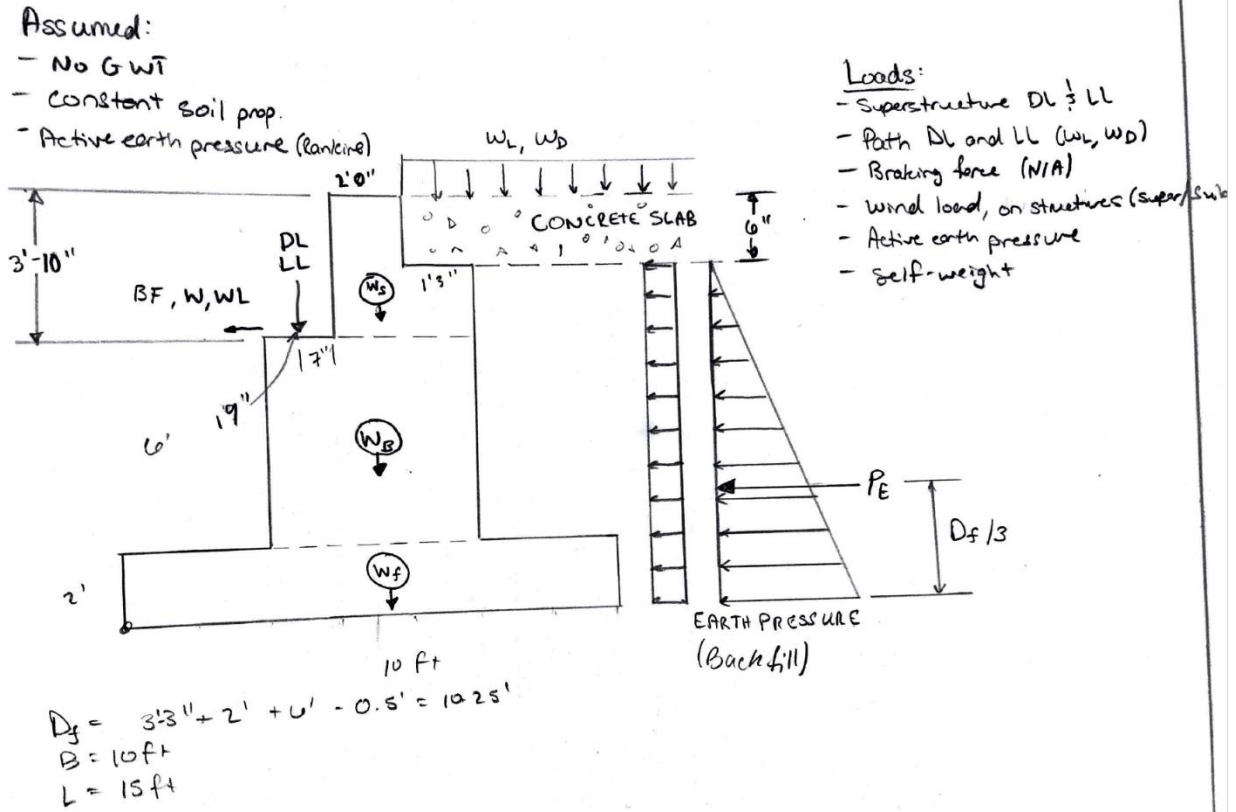 Assumed:
- No GWT
- Constant soil prop.
- Active earth pressure (Rankine)
Loads:
- Superstructure DL & LL
- Path DL and LL (WL, WD)
- Braking force (N/A)
- Wind load, on structures (super/sub
- Active earth pressure
- Self-weight
WL, WD
2'0"
CONCRETE SLAB
6"
3'-10"
DL
LL
BF, W, WL
Ws
1'3"
17"
19"
6'
WB
PE
Df/3
Wf
2'
EARTH PRESSURE
(Backfill)
10 ft
Df = 3'3" + 2' + 6' - 0.5' = 10.25'
B = 10ft
L = 15ft